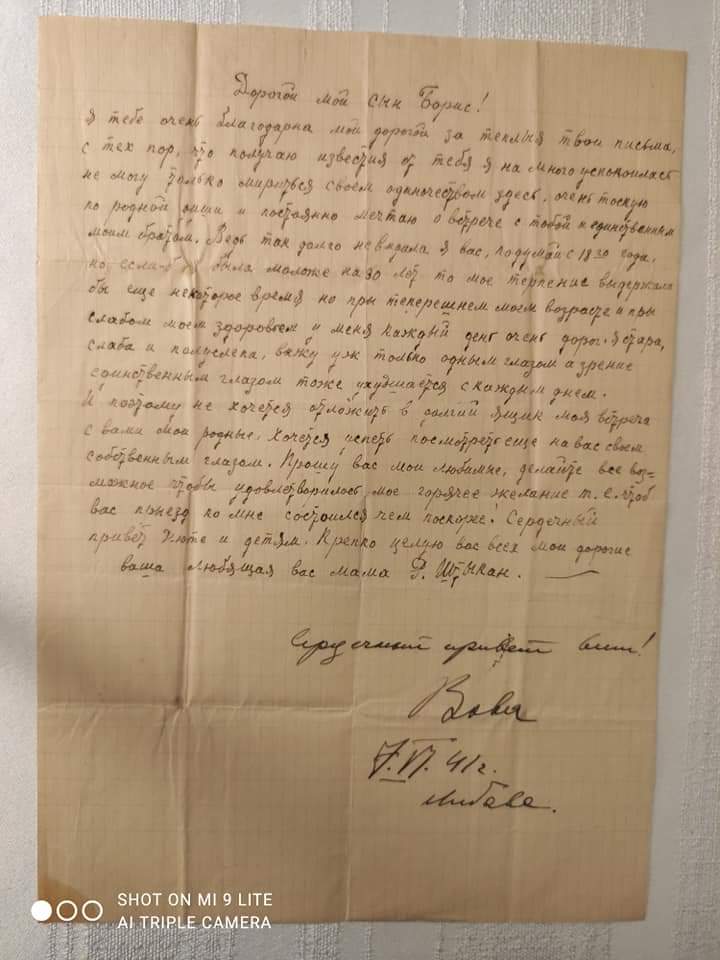 Дорогой мой сын Борис!
Я тебе очень благодарна мой дорогой за теплыя твои письма,
с тех пор, что получаю известия от тебя я на много успокоилась
не могу только мириться своем одиночеством здесь, очень тоскую
по родной и постоянно мечтаю о встрече с тобой и единственним
моим братом. Ведь так долго не видала я вас, подумай с 1830 года,
но если-б была моложе на 30 лет то мое терпение выдержала
бы еще некоторое время но при теперешнем моем возрасте и при
слабом моем здоровьем у меня каждый день очень дорог. Я стара,
слаба и полуслепа, вижу уж только одным глазом а зрение
единственным глазом тоже ухудшается с каждым днем.
И поэтому не хочется отложить в долгий ящик моя встреча
с вами мои родные. Хочется успеть посмотреть еще на вас своем
собственным глазом. Прошу вас мои любимые, делайте все воз=
можное чтобы удовлетворилось мое горячее желание т.е. чтоб
вас приезд ко мне состоился чем поскорже! Сердечный
привет Хюте и детям. Крепко целую вас всех мои дорогие
ваша любящая вас мама Р. Штыкан.
Сердечный привет вам!
Вова
7.VI.41г.
Либава.
SHOT ON MI 9 LITE
AI TRIPLE CAMERA